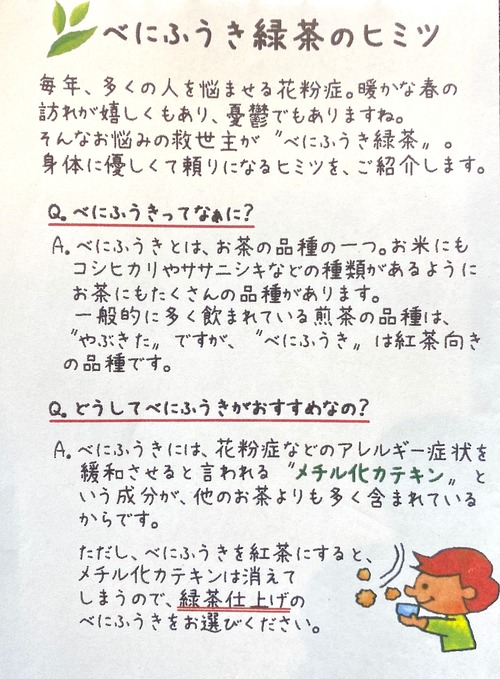 べにふうき緑茶のヒミツ
毎年、多くの人を悩ませる花粉症。暖かな春の
訪れが嬉しくもあり、憂鬱でもありますね。
そんなお悩みの救世主が〝べにふうき緑茶〟。
身体に優しくて頼りになるヒミツを、ご紹介します。
Q. べにふうきってなぁに?
A. べにふうきとは、お茶の品種の一つ。お米にも
コシヒカリやササニシキなどの種類があるように
お茶にもたくさんの品種があります。
一般的に多く飲まれている煎茶の品種は、
〝やぶきた〟ですが、〝べにふうき〟は紅茶向き
の品種です。
Q. どうしてべにふうきがおすすめなの?
A. べにふうきには、花粉症などのアレルギー症状を
緩和させると言われる〝メチル化カテキン〟と
いう成分が、他のお茶よりも多く含まれている
からです。
ただし、べにふうきを紅茶にすると、
メチル化カテキンは消えて
しまうので、緑茶仕上げの
べにふうきをお選びください。